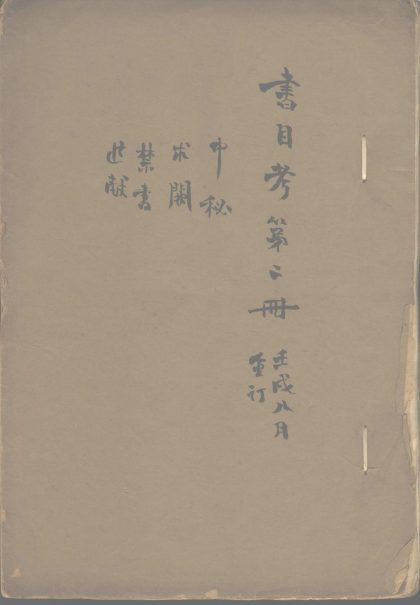 書目考第二冊
壬戌八月
重訂
中秘
求闕
禁書
進獻